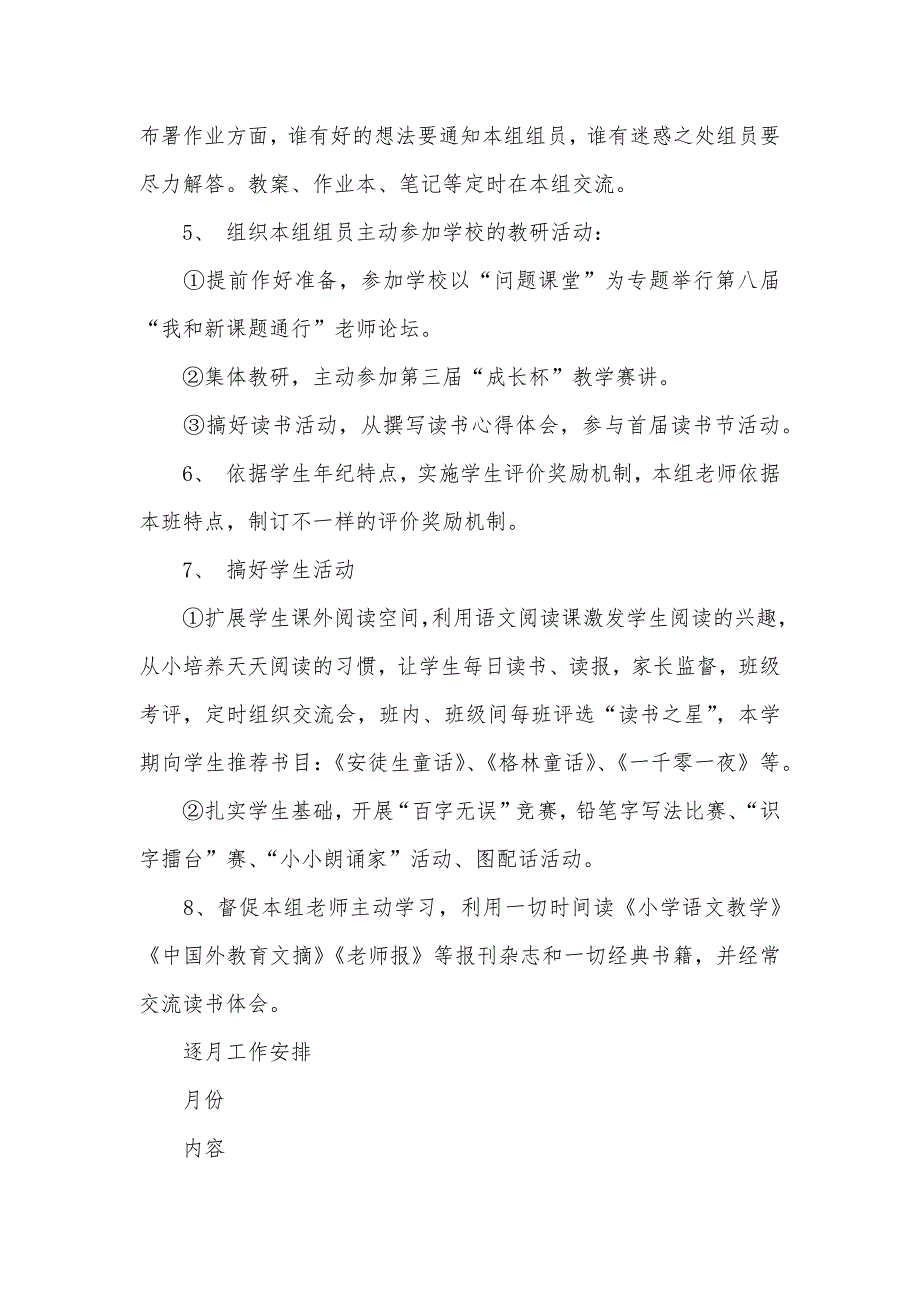 布署作业方面，谁有好的想法要通知本组组员，谁有迷惑之处组员要
尽力解答。教案、作业本、笔记等定时在本组交流。
5、 组织本组组员主动参加学校的教研活动：
①提前作好准备，参加学校以“问题课堂”为专题举行第八届
“我和新课题通行”老师论坛。
②集体教研，主动参加第三届“成长杯”教学赛讲。
③搞好读书活动，从撰写读书心得体会，参与首届读书节活动。
6、 依据学生年纪特点，实施学生评价奖励机制，本组老师依据
本班特点，制订不一样的评价奖励机制。
7、 搞好学生活动
①扩展学生课外阅读空间，利用语文阅读课激发学生阅读的兴趣，
从小培养天天阅读的习惯，让学生每日读书、读报，家长监督，班级
考评，定时组织交流会，班内、班级间每班评选“读书之星”，本学
期向学生推荐书目：《安徒生童话》、《格林童话》、《一千零一夜》等。
②扎实学生基础，开展“百字无误”竞赛，铅笔字写法比赛、“识
字擂台”赛、“小小朗诵家”活动、图配话活动。
8、督促本组老师主动学习，利用一切时间读《小学语文教学》
《中国外教育文摘》《老师报》等报刊杂志和一切经典书籍，并经常
交流读书体会。
逐月工作安排
月份
内容